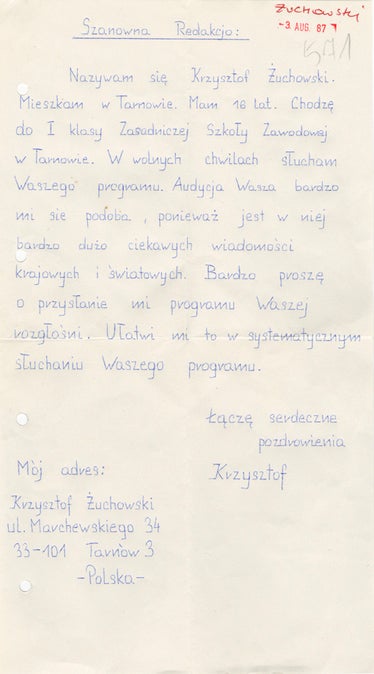 ŻUCHOWSKI
-3. AUG. 87
571
Szanowna Redakcjo:
Nazywam się Krzysztof Żuchowski.
Mieszkam w Tarnowie. Mam 16 lat. Chodzę
do I klasy Zasadniczej Szkoły Zawodowej
w Tarnowie. W wolnych chwilach słucham
Waszego programu. Audycja Wasza bardzo
mi sie podoba, ponieważ jest w niej
bardzo dużo ciekawych wiadomości
krajowych i światowych. Bardzo proszę
o przysłanie mi programu Waszej
rozgłośni. Ułatwi mi to w systematycznym
słuchaniu Waszego programu.
Łączę serdeczne
pozdrowienia
Krzysztof
Mój adres:
Krzysztof Żuchowski
ul. Marchewskiego 34
33-101 Tarnów 3
-Polska-